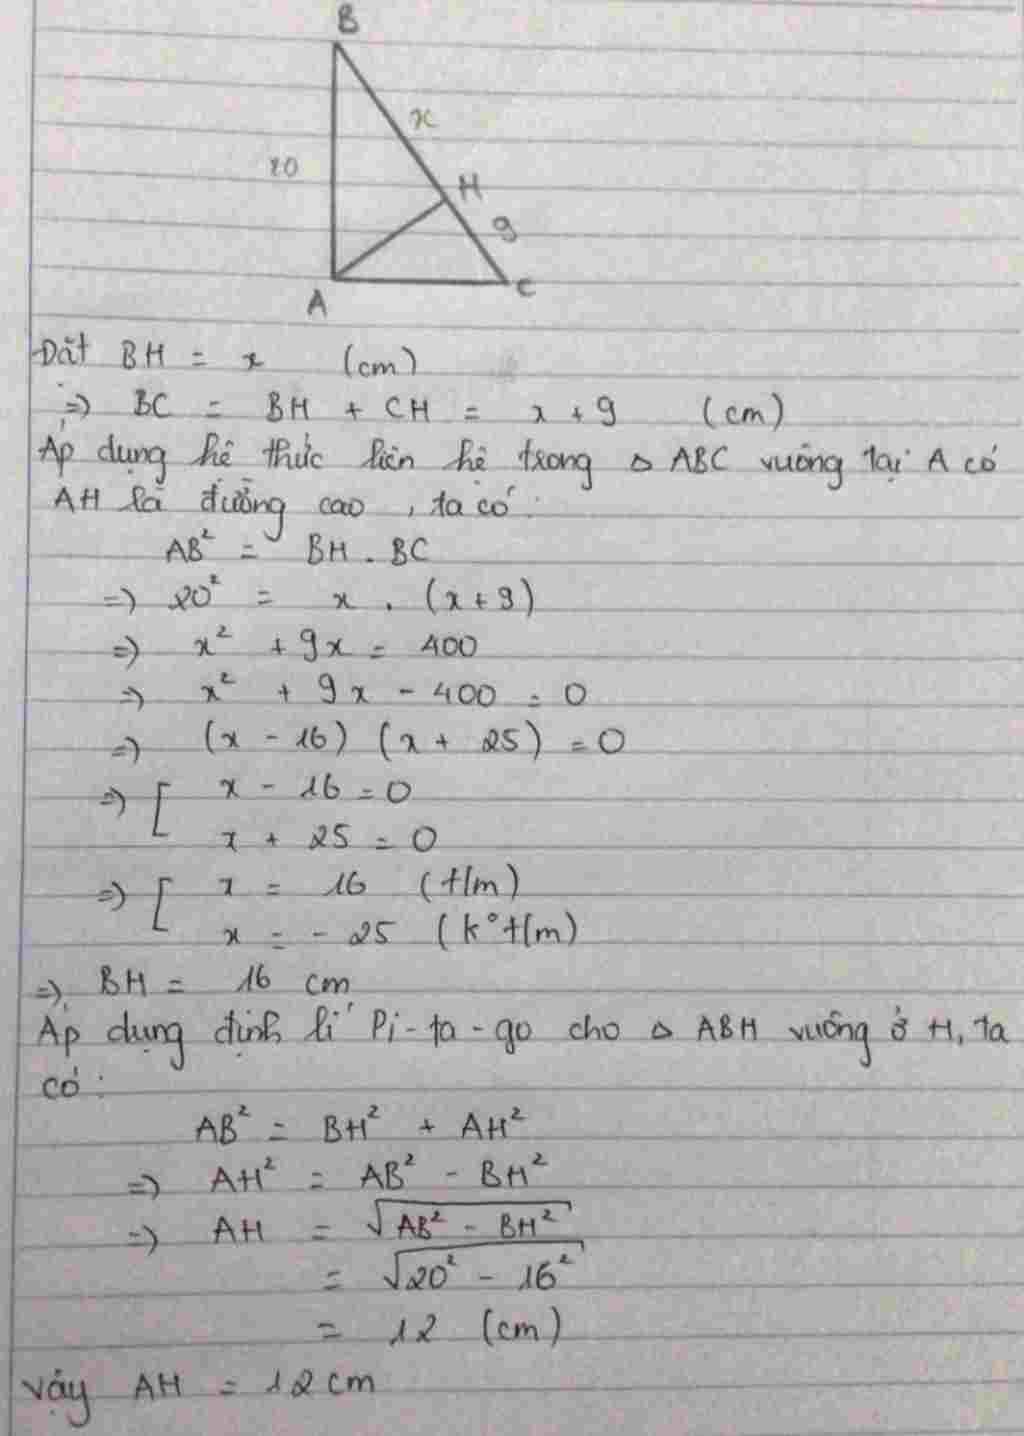 B
x
20
H
9
A
C
Đặt BH = x (cm)
=> BC = BH + CH = x + 9 (cm)
Áp dụng hệ thức liên hệ trong △ ABC vuông tại A có
AH là đường cao , ta có :
AB² = BH . BC
=> 20² = x . (x + 9)
=> x² + 9x = 400
=> x² + 9x - 400 = 0
=> (x - 16) (x + 25) = 0
=> [ x - 16 = 0
x + 25 = 0
=> [ x = 16 (t/m)
x = - 25 (k° t/m)
=> BH = 16 cm
Áp dụng định lí Pi-ta-go cho △ ABH vuông ở H, ta
có :
AB² = BH² + AH²
=> AH² = AB² - BH²
=> AH = √AB² - BH²
= √20² - 16²
= 12 (cm)
Vậy AH = 12 cm